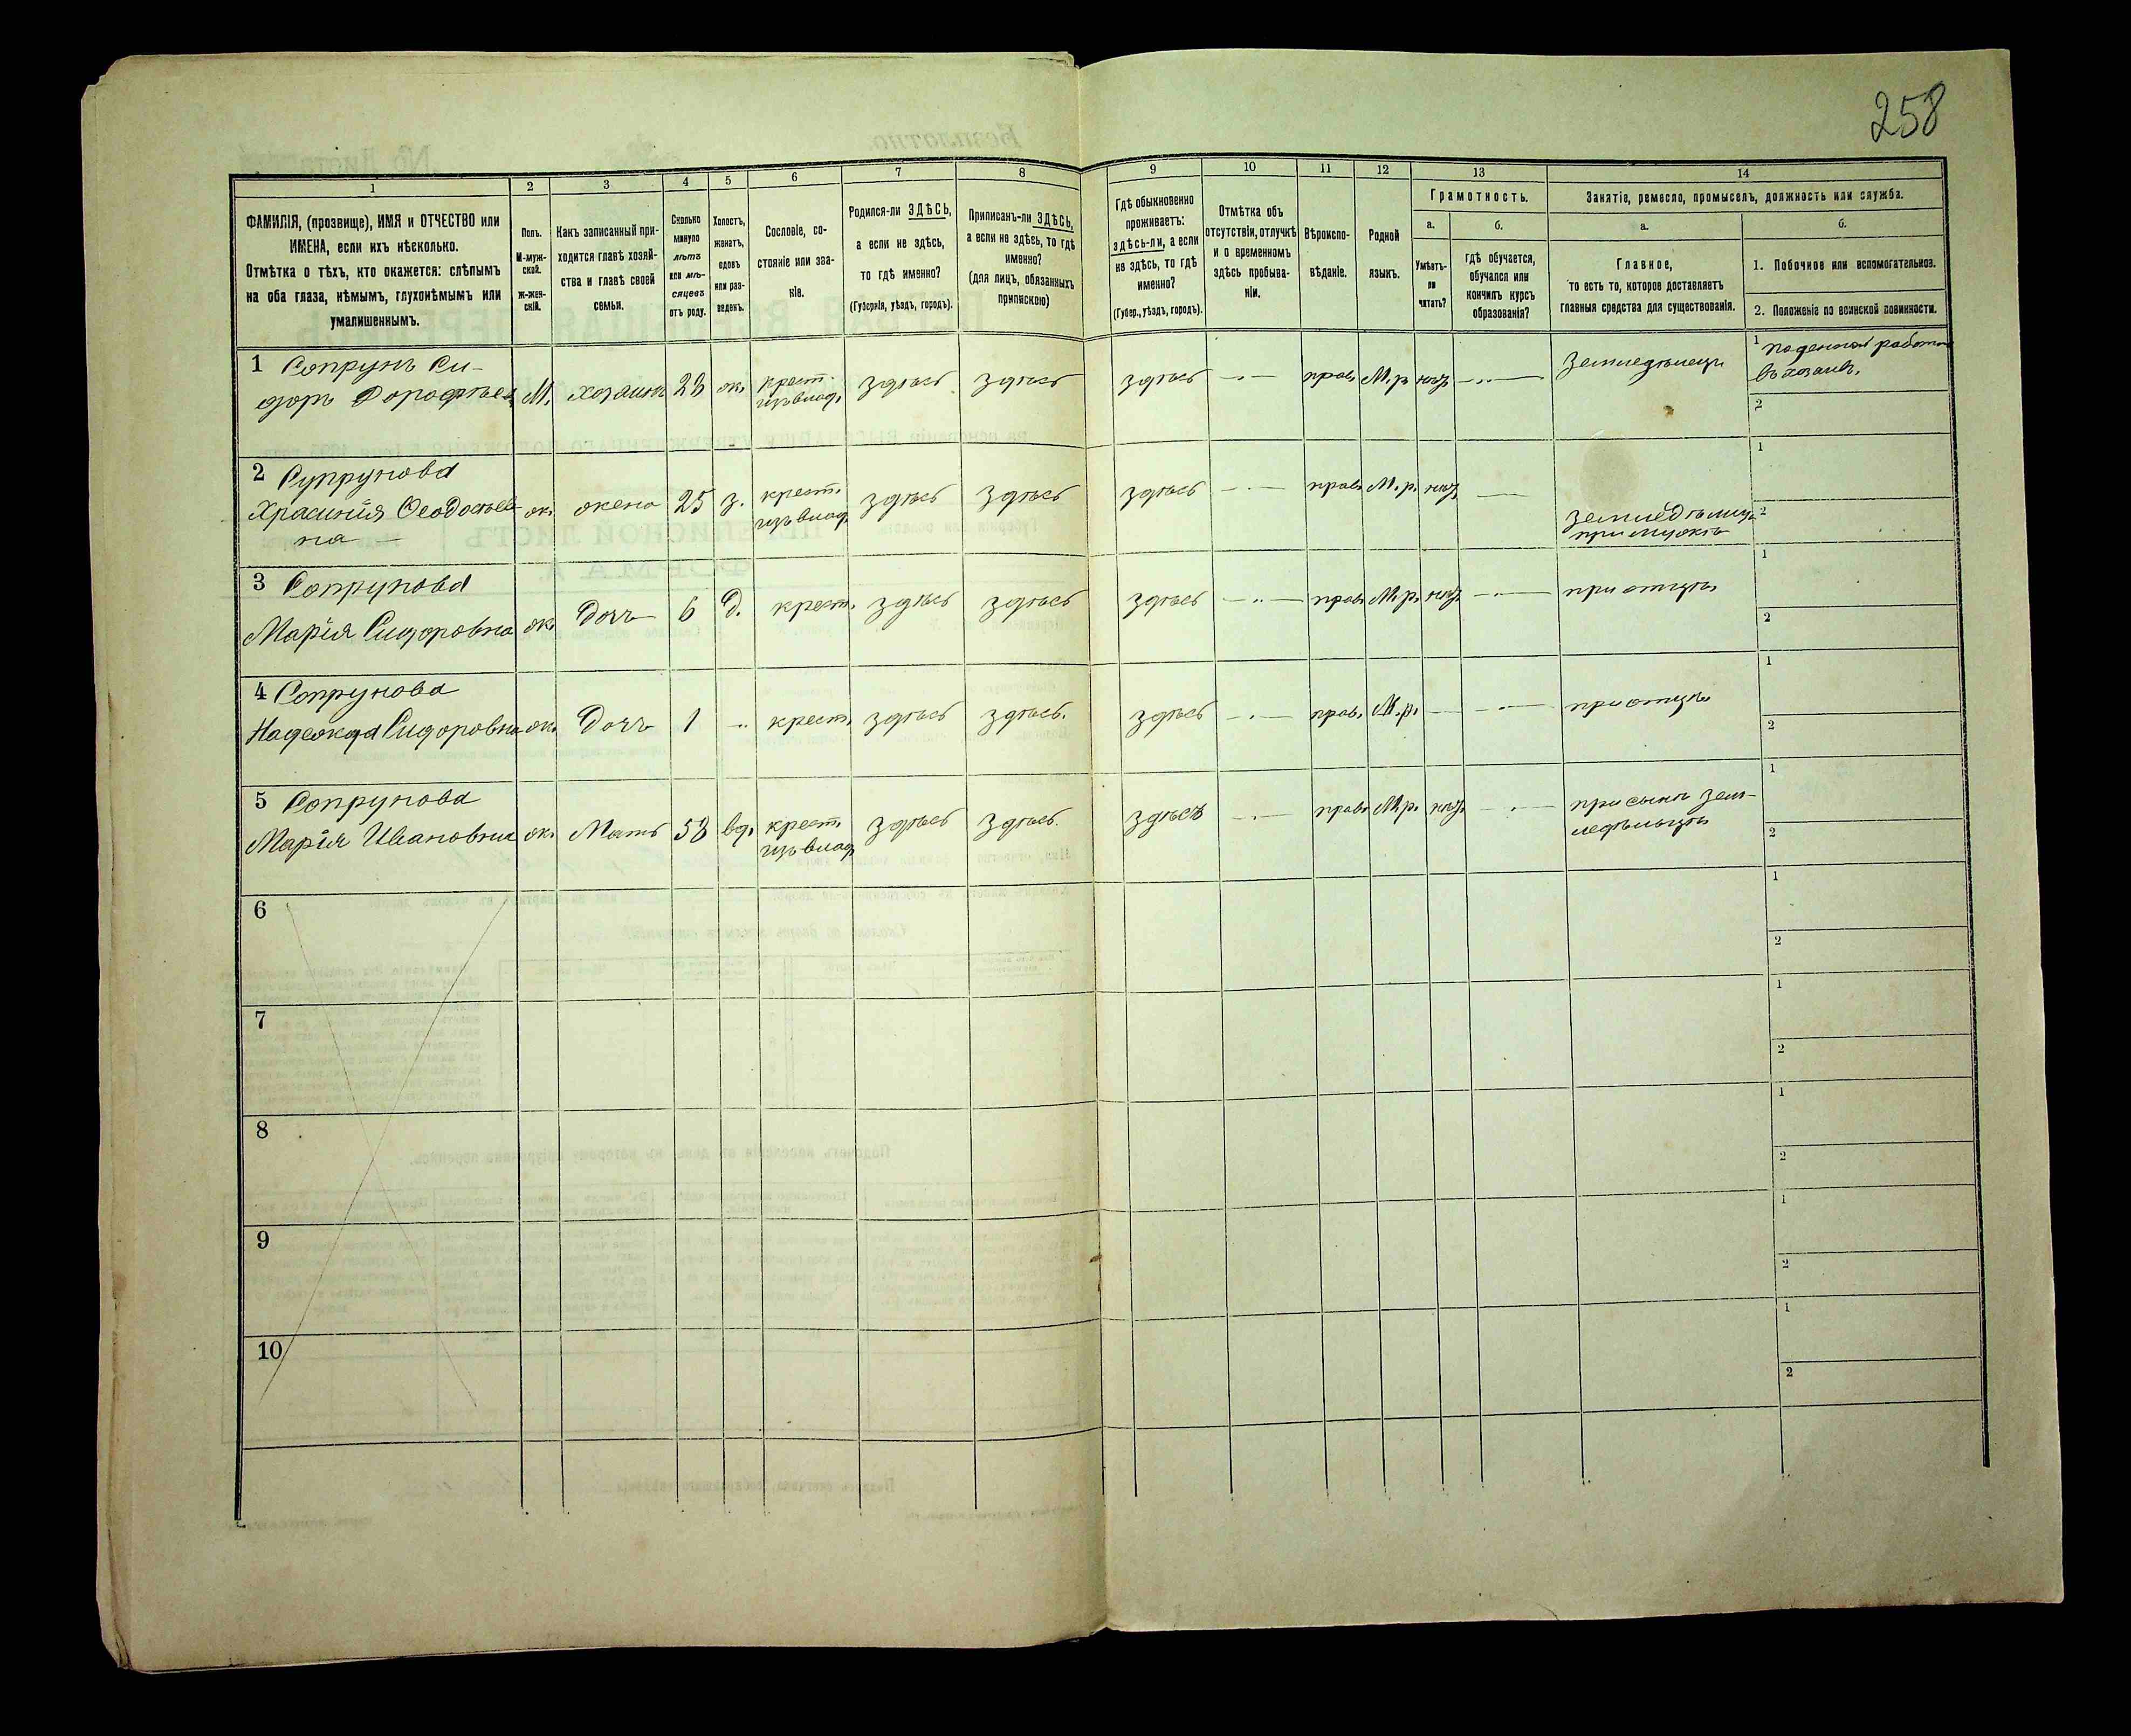 258
1
2
3
4
5
6
7
8
9
10
11
12
13
14
ФАМИЛІЯ, (прозвище), ИМЯ и ОТЧЕСТВО или
ИМЕНА, если ихъ нѣсколько.
Отмѣтка о тѣхъ, кто окажется: слѣпымъ
на оба глаза, нѣмымъ, глухонѣмымъ или
умалишеннымъ.
Полъ.
М-муж-
ской.
Ж-жен-
скій.
Какъ записанный при-
ходится главѣ хозяй-
ства и главѣ своей
семьи.
Сколько
минуло
лѣтъ
или мѣ-
сяцевъ
отъ роду.
Холостъ,
женатъ,
вдовъ
или раз-
веденъ.
Сословіе, со-
стояніе или зва-
ніе.
Родился-ли ЗДѢСЬ,
а если не здѣсь,
то гдѣ именно?
(Губернія, уѣздъ, городъ).
Приписанъ-ли ЗДѢСЬ,
а если не здѣсь, то гдѣ
именно?
(для лицъ, обязанныхъ
припискою)
Гдѣ обыкновенно
проживаетъ:
здѣсь-ли, а если
не здѣсь, то гдѣ
именно?
(Губер., уѣздъ, городъ).
Отмѣтка объ
отсутствіи, отлучкѣ
и о временномъ
здѣсь пребыва-
ніи.
Вѣроиспо-
вѣданіе.
Родной
языкъ.
Грамотность.
а.
Умѣетъ-
ли
читать?
б.
гдѣ обучается,
обучался или
кончилъ курсъ
образованія?
Занятіе, ремесло, промыселъ, должность или служба.
а.
Главное,
то есть то, которое доставляетъ
главныя средства для существованія.
б.
1. Побочное или вспомогательное.
2. Положеніе по воинской повинности.
1 Сопрунъ Си-
доръ Дорофѣев М. хозяинъ 28 ж. крест. изъ влад. здѣсь здѣсь здѣсь — прав. М.р. нѣт — Земледѣлецъ
1 поденная работа
въ хозяев.
2
2 Супрунова
Хрисинія Феодосьев
на ж. жена 25 з. крест. изъ влад. здѣсь здѣсь здѣсь — прав. М.р. нѣт — земледѣлица
при мужѣ
1
2
3 Сопрунова
Марія Сидоровна ж. Дочь 6 д. крест. здѣсь здѣсь здѣсь — прав. М.р. нѣт — при отцѣ
1
2
4 Сопрунова
Надежда Сидоровна ж. Дочь 1 „ крест. здѣсь здѣсь. здѣсь — прав. М.р. — — при отцѣ
1
2
5 Сопрунова
Марія Ивановна ж. Мать 58 вд. крест. изъ влад. здѣсь здѣсь. здѣсь — прав. М.р. нѣт — при сынѣ зем-
ледѣльцѣ
1
2
6
1
2
7
1
2
8
1
2
9
1
2
10
1
2